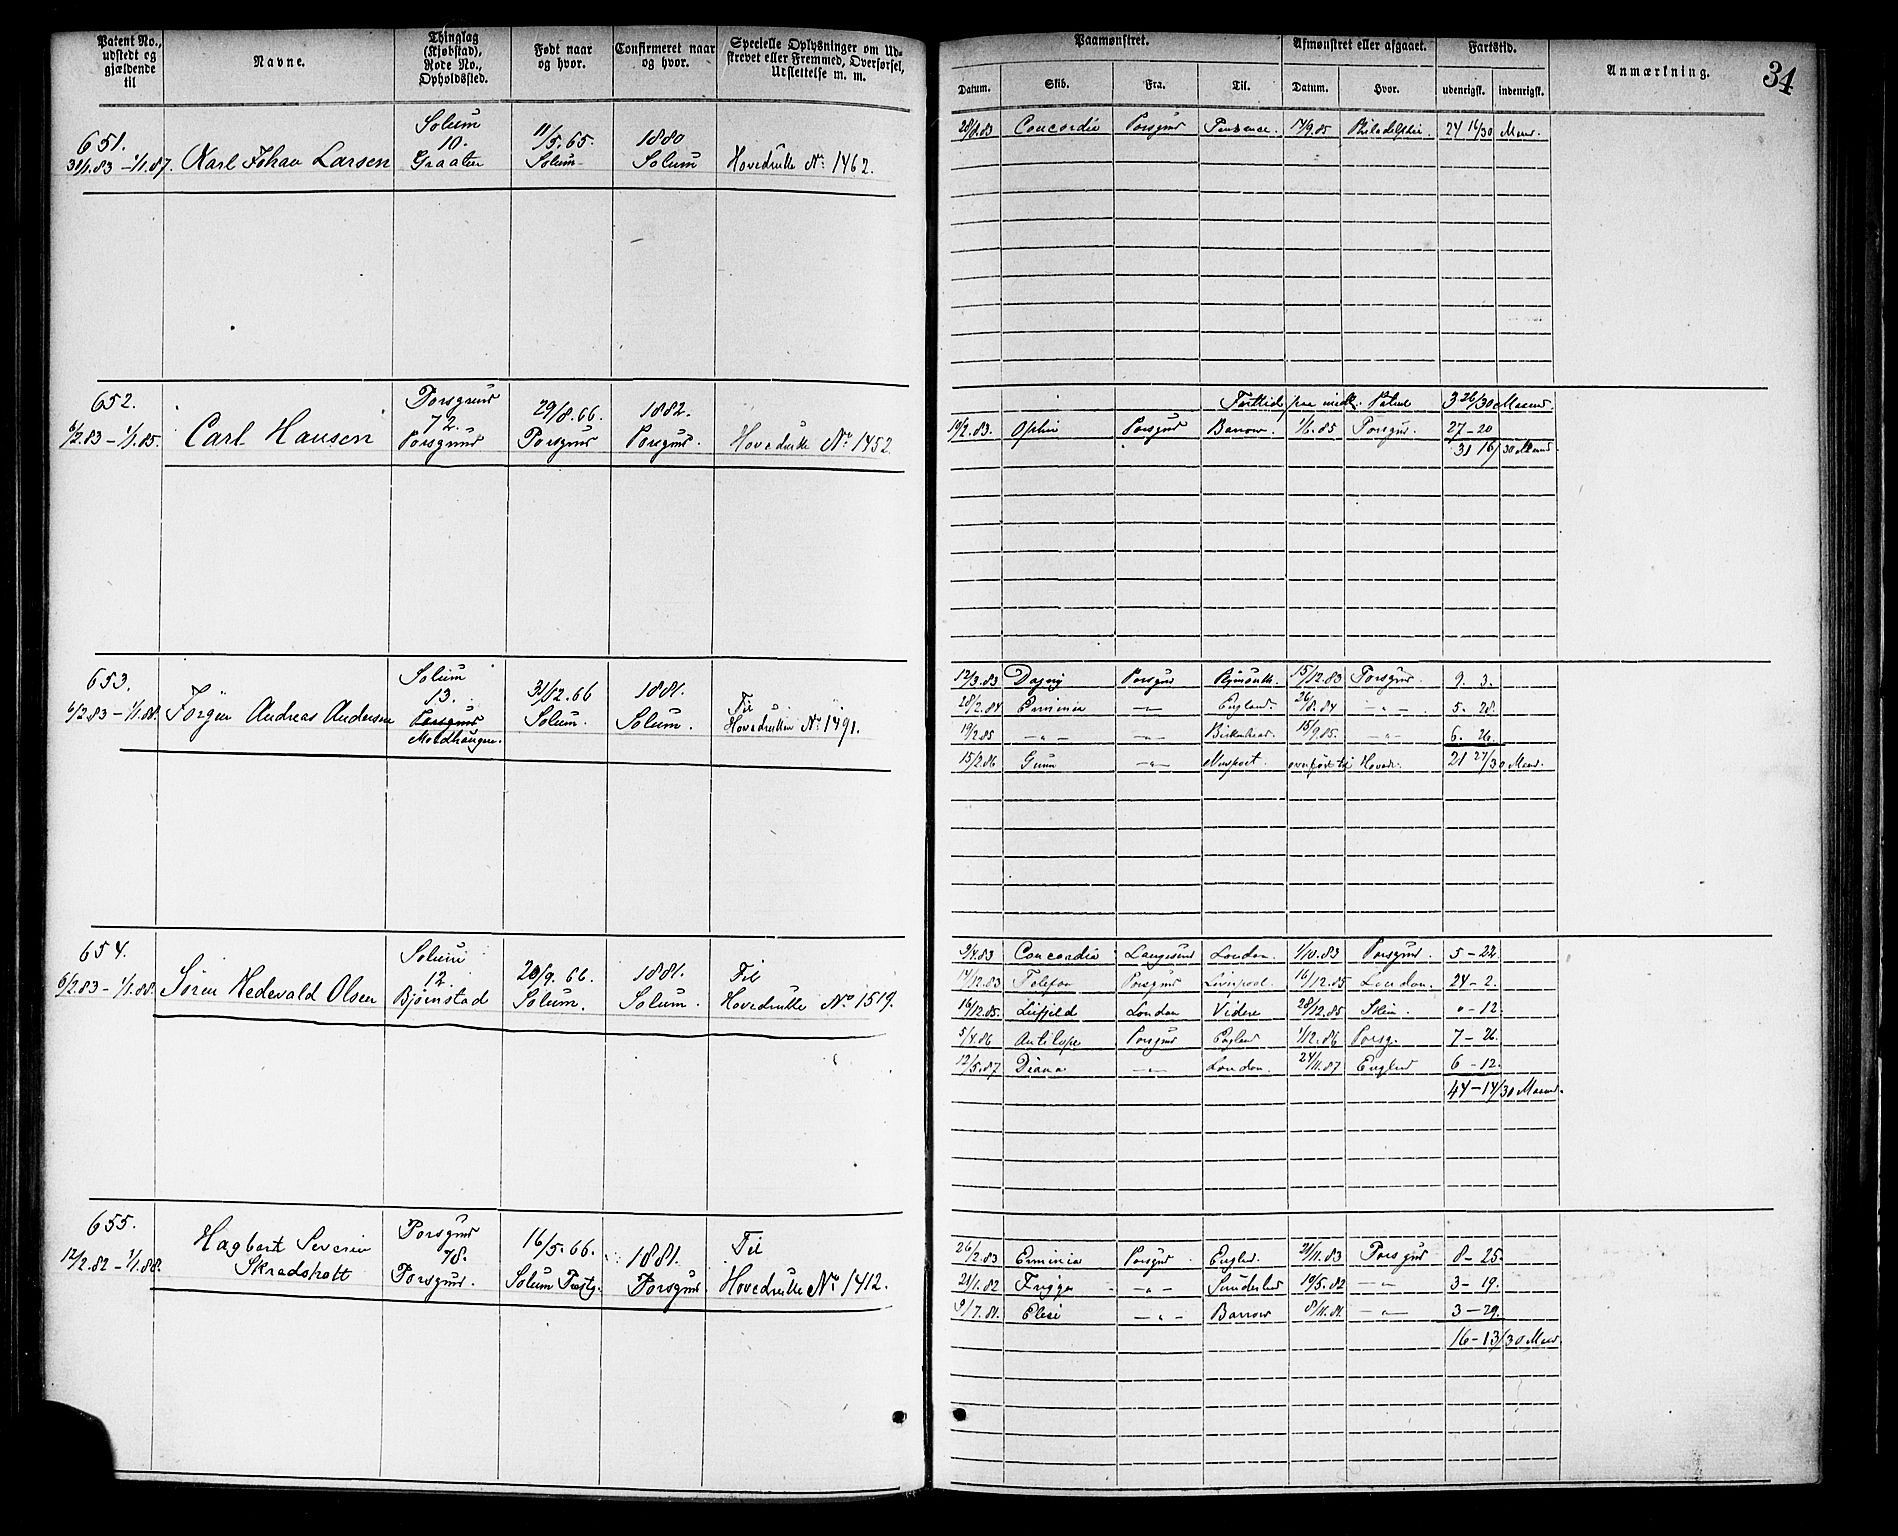 Patent No., udstedt og gjældende til
Navne.
Thinglag (Kjøbstad), Rode No., Opholdssted.
Født naar og hvor.
Confirmeret naar og hvor.
Specielle Oplysninger om Udskrevet eller Fremmed, Overførsel, Udslettelse m. m.
Paamønstret.
Afmønstret eller afgaaet.
Fartstid.
Anmærkning.
34
Datum.
Skib.
Fra.
Til.
Datum.
Hvor.
udenrigsk.
indenrigsk.
651.
31/1.83 – 1/1.87.
Karl Johan Larsen
Solum
10.
Graaten
11/5.65.
Solum
1880
Solum
Hovedrulle No 1462.
28/8.83 Concordia Porsgrund 17/9.85 Philadelphia. 24 16/30 Maaned.
652.
6/2.83 – 1/1.85.
Carl Hansen
Porsgrund
72.
Porsgrund
29/8.66.
Porsgrund
1882.
Porsgrund.
Hovedrulle No 1452.
Farttid paa midl. Patent 3 26/30 Maaned.
10/2.83. Ophir Porsgrund Barrow. 1/6.85 Porsgrund. 27–20
31 16/30 Maaned.
653.
6/2.83 – 1/1.88.
Jörgen Andreas Andersen
Solum
13.
Porsgrund
Moldhaugen.
31/12.66
Solum.
1881.
Solum.
Til
Hovedrullen No 1491.
12/3.83 Dagny Porsgrund Plymouth. 15/12.83 Porsgrund. 9. 3.
28/2.84 Erminia – „ – England. 26/8.84 – „ – 5. 28.
19/2.85 – „ – – „ – Birkenhead. 15/9.85. – „ – 6. 26.
15/2.86 – „ – Newport. overført til Hovedr. 21 27/30 Maaned.
654.
6/2.83 – 1/1.88.
Sören Hedevald Olsen
Solum
12.
Bjørnstad
20/9.66.
Solum.
1881.
Solum.
Til
Hovedrulle No 1519.
9/4.83 Concordia Langesund London. 1/10.83 Porsgrund. 5–22
17/12.83 Telefon Porsgrund Liverpool. 16/12.85 London. 24–2.
16/12.85. London Videre 28/12.85 Skien. „–12.
5/4.86 Antilope Porsgrund England 1/12.86 Porsg. 7–26.
12/5.87 Diana – „ – London. 24/11.87 England 6–12.
44–14/30 Maaned.
655.
12/2.82 – 1/1.88.
Hagbart Severin
Skradshott
Porsgrund
78.
Porsgrund.
16/5.66.
Solum
1881.
Porsgrund.
Til
Hovedrulle No 1412.
26/2.83 Erminia Porsgrund England. 21/11.83 Porsgrund 8–25.
21/1.82 Frigga – „ – Sunderland 10/5.82 – „ – 3–19.
9/7.81. Elise – „ – Barrow 8/11.81. – „ – 3–29.
16–13/30 Maaned.